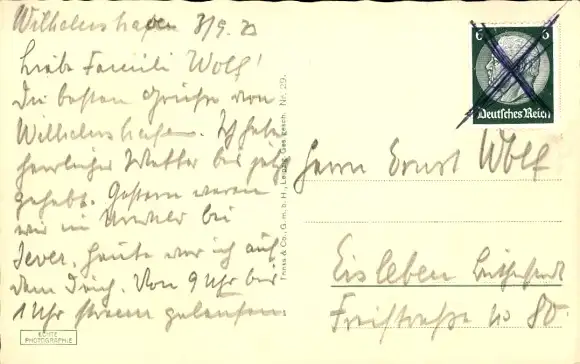 Wilhelmshaven 8/9. 33
Liebe Famili Wolf!
Die besten Grüße von
Wilhelmshafen. Ich habe
herrliches Wetter bis jetzt
gehabt. Gestern waren
wir im Urwald bei
Jever. Heute war ich auf
dem Deich. Von 9 Uhr bis
1 Uhr stramm gelaufen.
ECHTE
PHOTOGRAPHIE
Trinks & Co., G.m.b.H., Leipzig Ges. gesch. Nr. 29.
6 6
Deutsches Reich
Herrn Ernst Wolf
Eisleben Lutherstadt
Freistraße No 80.